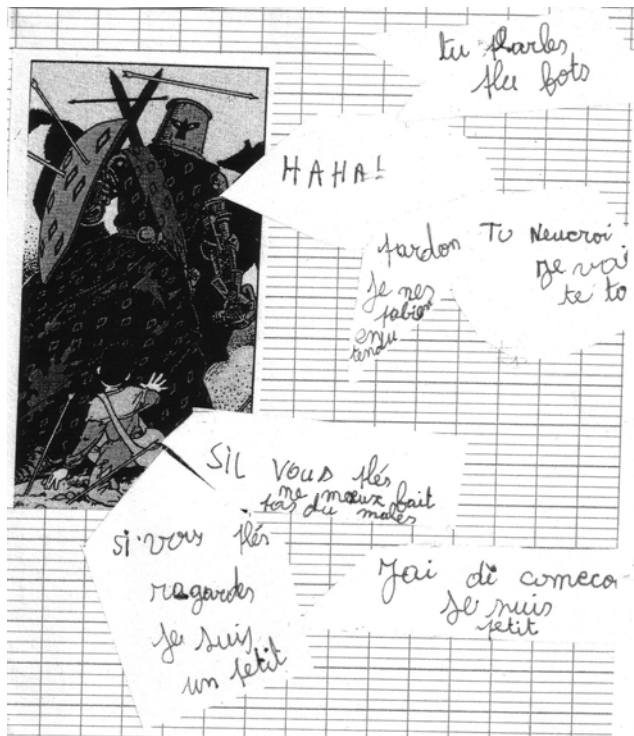 tu parles
plu fots
HAHA!
pardon
je nes
pabien
entendu
TU Neucroi
Je vai
te to
SIL VOUS plés
ne meux fait
pas du males
si vous plés
ragardes
je suis
un petit
Jai di comeca
je suis
petit